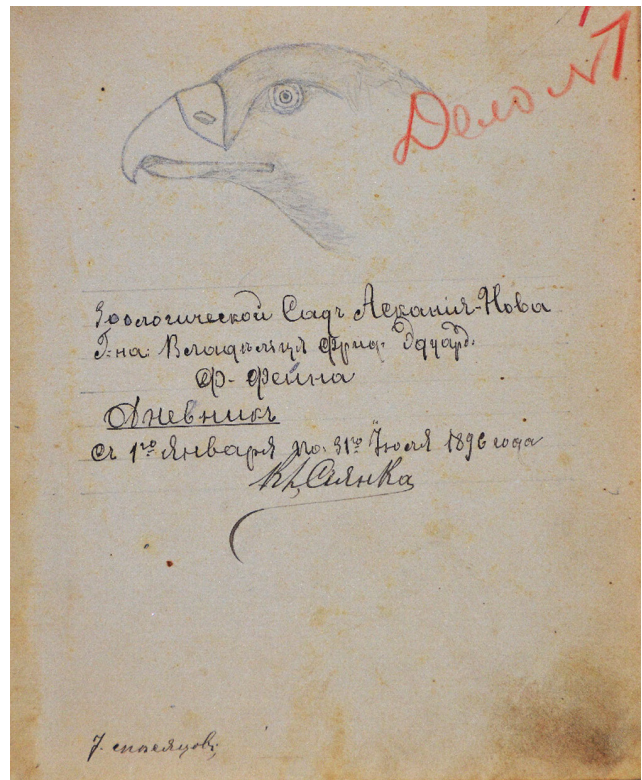 Дело №1
Зоологической Садъ Асканія-Нова
Г-на: Владѣльца Фрид. Эдуард.
Ф. Фейна
Дневникъ
съ 1го Января по. 31е Іюля 1896 года
К. Сіянко
7. месяцовъ